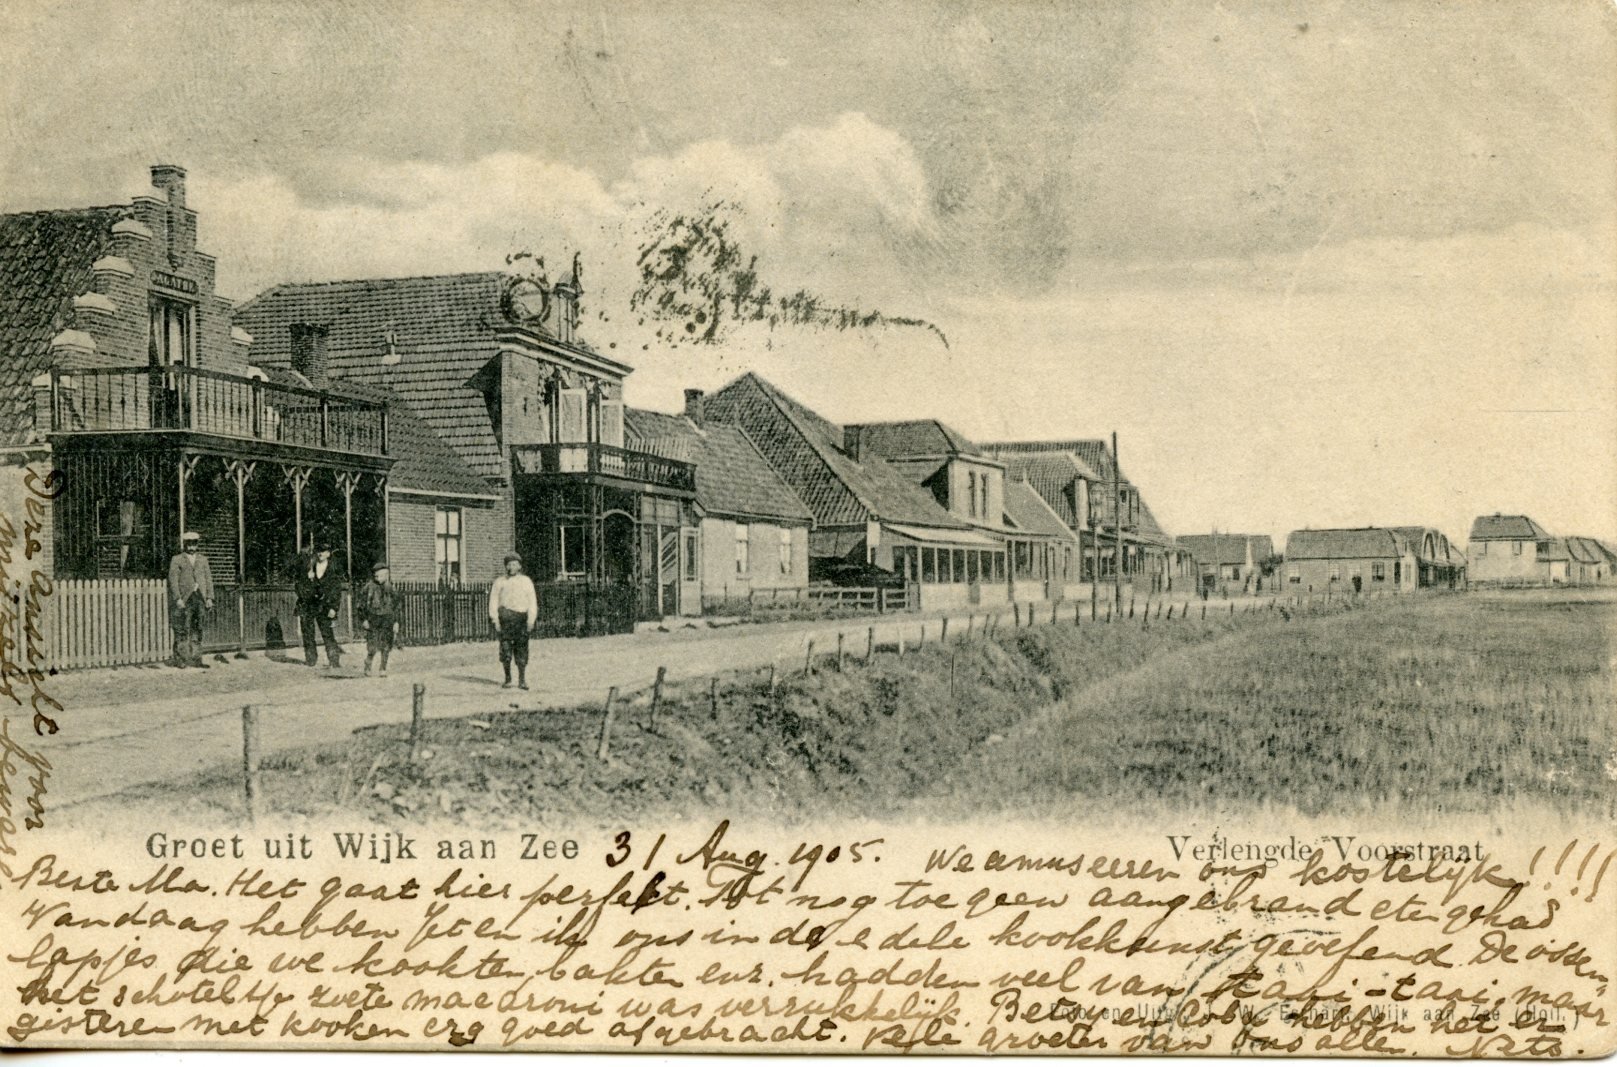 Groet uit Wijk aan Zee
Verlengde Voorstraat
31 Aug. 1905. We amuseeren ons kostelijk!!!!
Beste Ma. Het gaat hier perfekt. Tot nog toe geen aangebrand eten gehad
Vandaag hebben Jet en ik ons in de edele kookkunst geoefend. De ossen-
lapjes die we kookten, bakten enz. hadden veel van taai-taai, maar
het schoteltje zoete macaroni was verrukkelijk. Bets en Coba hebben het er
gisteren met kooken erg goed afgebracht. Vele groeten van ons allen. Nets.
Deze voor
Foto en Uitg. Wijk aan Zee (Holl.)